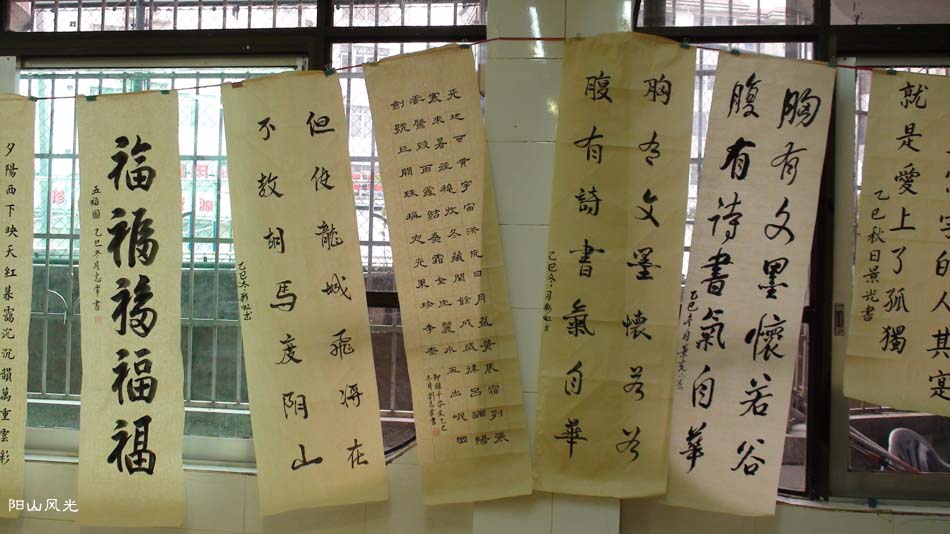 夕陽西下映天紅暮靄沉沉韻萬重雲彩
福福福福福
五福圖
但使龍城飛將在
不教胡馬度阴山
乙巳冬彩虹书
天地玄黃宇宙洪荒日月盈昃辰宿列張
寒來暑往秋收冬藏閏餘成歲律呂調陽
雲騰致雨露結為霜金生麗水玉出崑岡
劍號巨闕珠稱夜光果珍李柰
節錄千字文乙巳
冬月劉志常書
胸有文墨懷若谷
腹有詩書氣自華
胸有文墨懷若谷
腹有诗書氣自華
字的人其寔
就是愛上了孤獨
乙巳秋日景光書
阳山风光